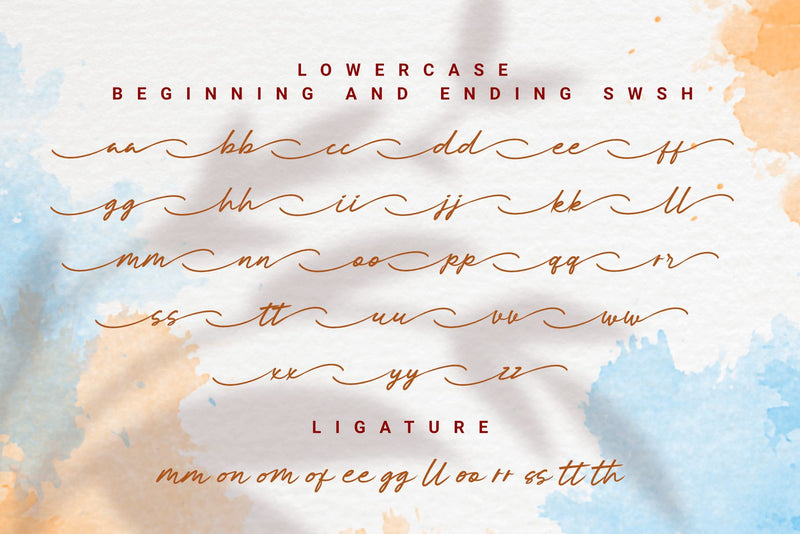 LOWERCASE
BEGINNING AND ENDING SWSH
aa bb cc dd ee ff
gg hh ii jj kk ll
mm nn oo pp qq rr
ss tt uu vv ww
xx yy zz
LIGATURE
mm on om of ee gg ll oo rr ss tt th